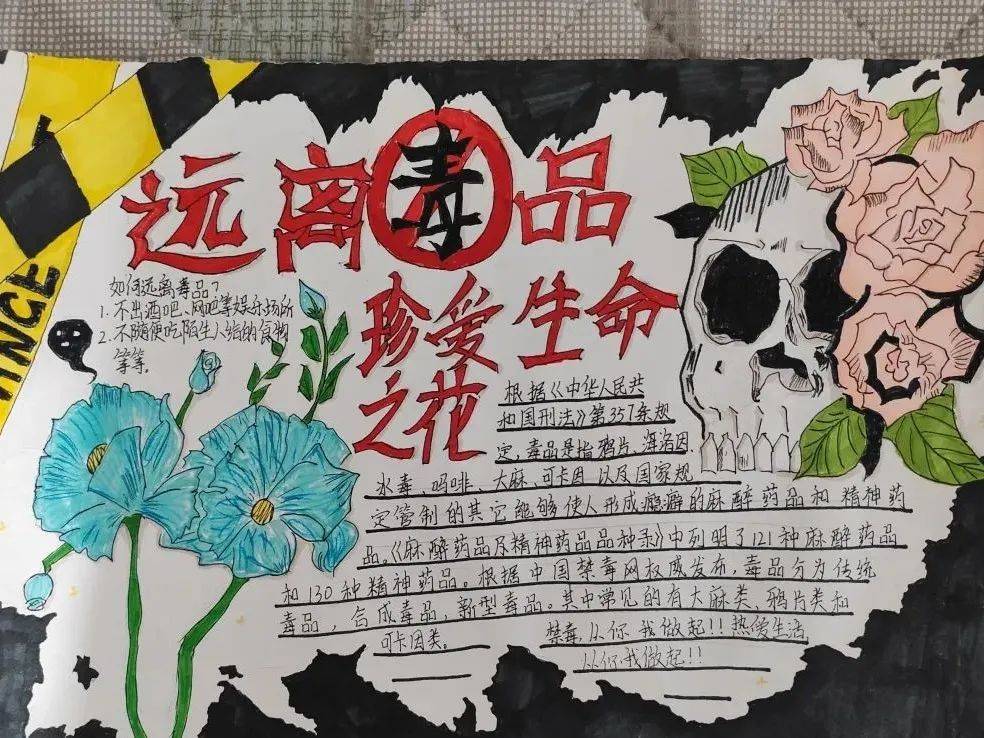 远离毒品
珍爱生命
之花
如何远离毒品?
1. 不出酒吧、网吧等娱乐场所
2. 不随便吃陌生人给的食物
等等。
根据《中华人民共
和国刑法》第357条规
定,毒品是指鸦片、海洛因、
冰毒、吗啡、大麻、可卡因以及国家规
定管制的其它能够使人形成瘾癖的麻醉药品和精神药
品。《麻醉药品及精神药品品种录》中列明了121种麻醉药品
和130种精神药品。根据中国禁毒网权威发布,毒品分为传统
毒品,合成毒品,新型毒品。其中常见的有大麻类、鸦片类和
可卡因类。
禁毒,从你我做起!!热爱生活,
从你我做起!!